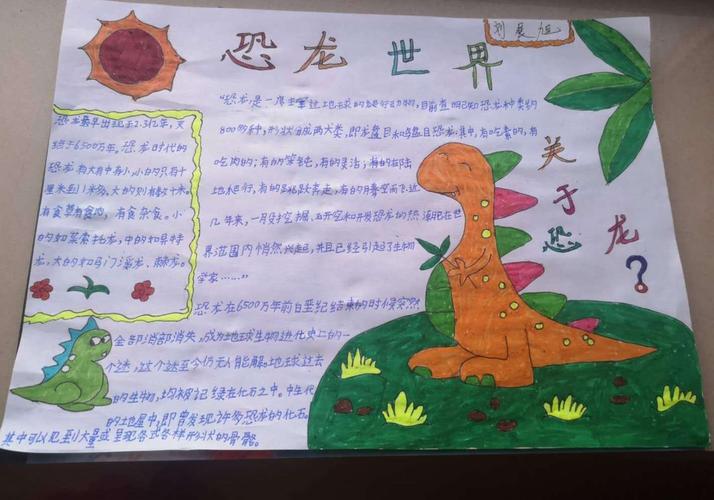 恐龙世界
恐龙最早出现于2.3亿年,灭
绝于6500万年。恐龙时代的
恐龙有大有中有小,小的只有十
厘米至1米多,大的则有数十米。
有食草有食肉,有食杂食。小
龙,大的如马门溪龙、棘龙。
"恐龙,是一度主宰过地球的
800多种,形状分成两大类,即龙盘目和鸟盘目恐龙,其中,有吃素的,有
吃肉的;有的笨钝,有的灵活;有的在陆
地爬行,有的跳跃奔走,有的腾空而飞近
几年来,一股挖掘、研究和开发恐龙的热潮已在世
界范围内悄然兴起,并且已经引起了生物
学家……"
关于恐龙?
恐龙在6500万年前白垩纪结束的时候突然
全部消部消失,成为地球生物进化史上的一
个迷,这个迷至今仍无人能解。地球过去
的生物,均被记绿在化石之中。中生代
的地层中,即曾发现许多恐龙的化石。
其中可以见到大量或呈现各式各样形状的骨骼。